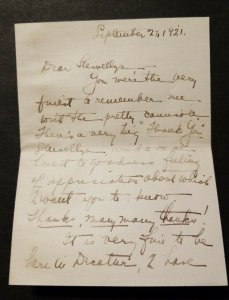 September 27, 1921.
Dear Llewellyn -
You were the very
finest to remember me
with the pretty
There's a very big "Thank You
Llewellyn and a
honest to goodness feeling
of appreciation about which
I want you to know
Thanks, many many thanks!
It is very fine to be
here in Decatur, I have